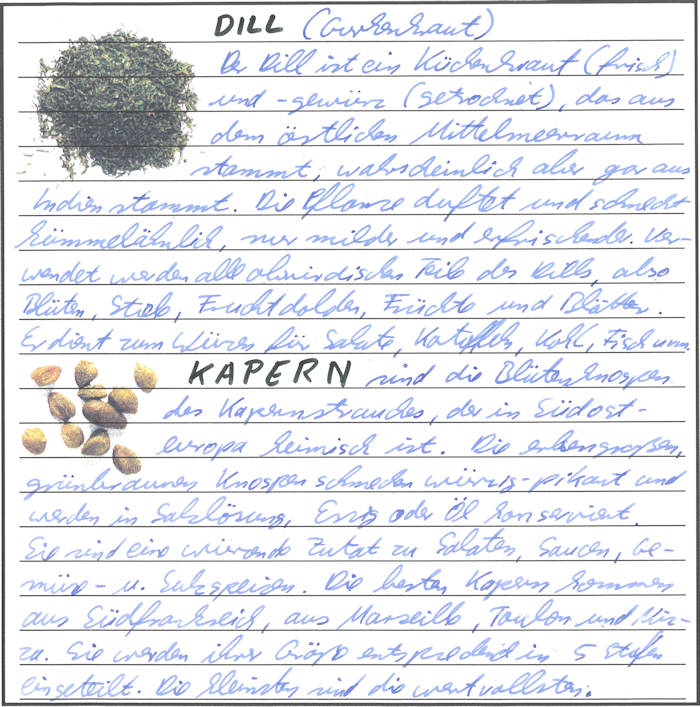 DILL (Gurkenkraut)
Der Dill ist ein Küchenkraut (frisch)
und -gewürz (getrocknet), das aus
dem östlichen Mittelmeerraum
stammt, wahrscheinlich aber gar aus
Indien stammt. Die Pflanze duftet und schmeckt
kümmelähnlich, nur milder und erfrischender. Ver-
wendet werden alle oberirdischen Teile des Dills, also
Blüten, Stiele, Fruchtdolden, Früchte und Blätter.
Er dient zum Würzen für Salate, Kartoffeln, Kohl, Fisch usw.
KAPERN sind die Blütenknospen
des Kapernstrauches, der in Südost-
europa heimisch ist. Die erbsengroßen,
grünbraunen Knospen schmecken würzig-pikant und
werden in Salzlösung, Essig oder Öl konserviert.
Sie sind eine würzende Zutat zu Salaten, Saucen, Ge-
müse- u. Sulzspeisen. Die besten Kapern kommen
aus Südfrankreich, aus Marseille, Toulon und
Sie werden ihrer Größe entsprechend in 5 Stufen
eingeteilt. Die kleinsten sind die wertvollsten.